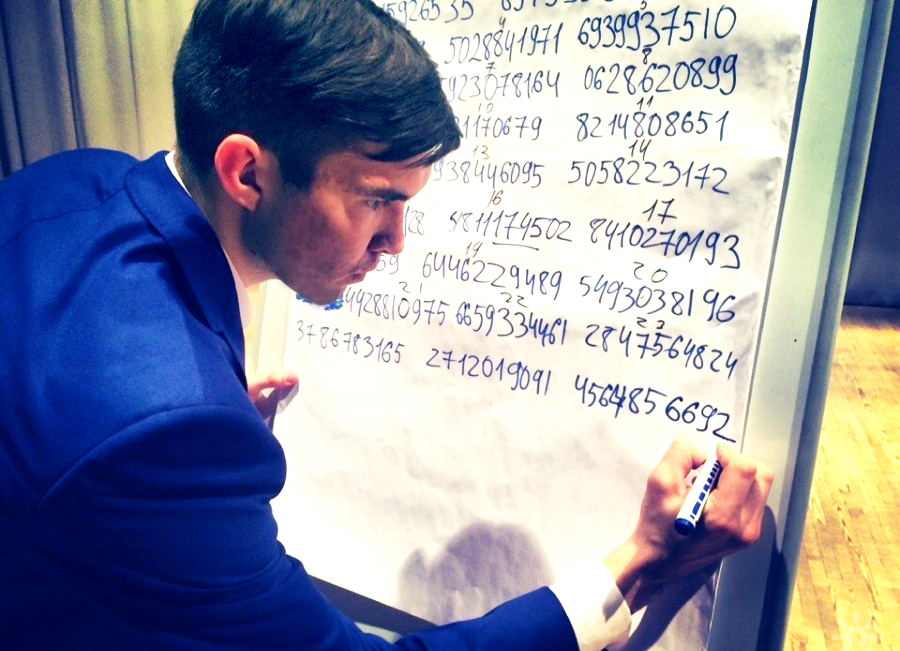 5926535
4 5
5028841971 6939937510
7 8
923078164 0628620899
10 11
1170679 8214808651
13 14
938446095 5058223172
16 17
28 4811174502 8410270193
19 20
59 6446229489 5493038196
21 22 23
4428810975 6659334461 2847564824
3786783165 2712019091 4564856692